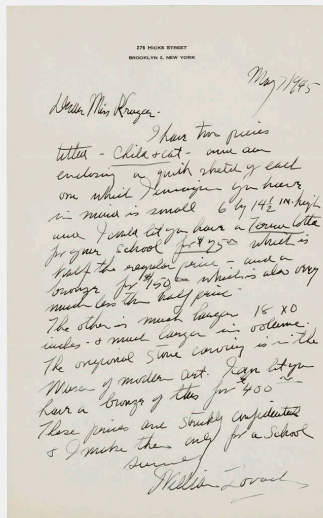 276 HICKS STREET
BROOKLYN 2, NEW YORK
May 7 1945
Dear Miss Kruger -
I have two pieces
titled - Child & cat - and am
enclosing a quick sketch of each
one which I imagine you have
in mind is small 6 by 14½ in. high
and I could let you have a Terra Cotta
for your School for $75 which is
half the regular price - and a
bronze for $150 which is also very
much less than half price.
The other is much larger 18
inches - & much larger in volume.
The original Stone carving is in the
Museum of modern art. I can let you
have a bronze of this for $400
These prices are strictly confidential
& I make them only for a School
William Zorach